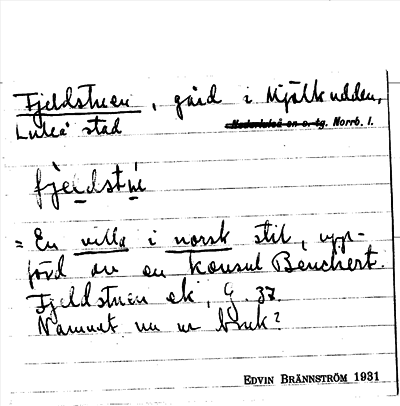 Fjeldstuen, gård i Mjölkudden,
Luleå stad Nederluleå sn o. tg. Norrb. l.
fjeldstúe
= En villa i norsk stil, upp-
förd av en konsul Benchert.
Fjeldstuen ek, G. 37.
Namnet nu ur bruk?
EDVIN BRÄNNSTRÖM 1931